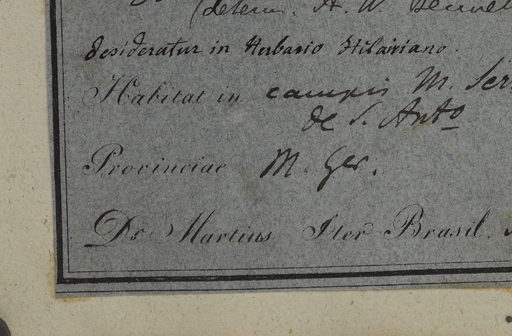 (determ. A. W. Bennet
desideratur in Herbario Hilairiano.
Habitat in campis M. Ser
de S. Anto
Provinciae M. Ger.
Dr Martius Iter Brasil.